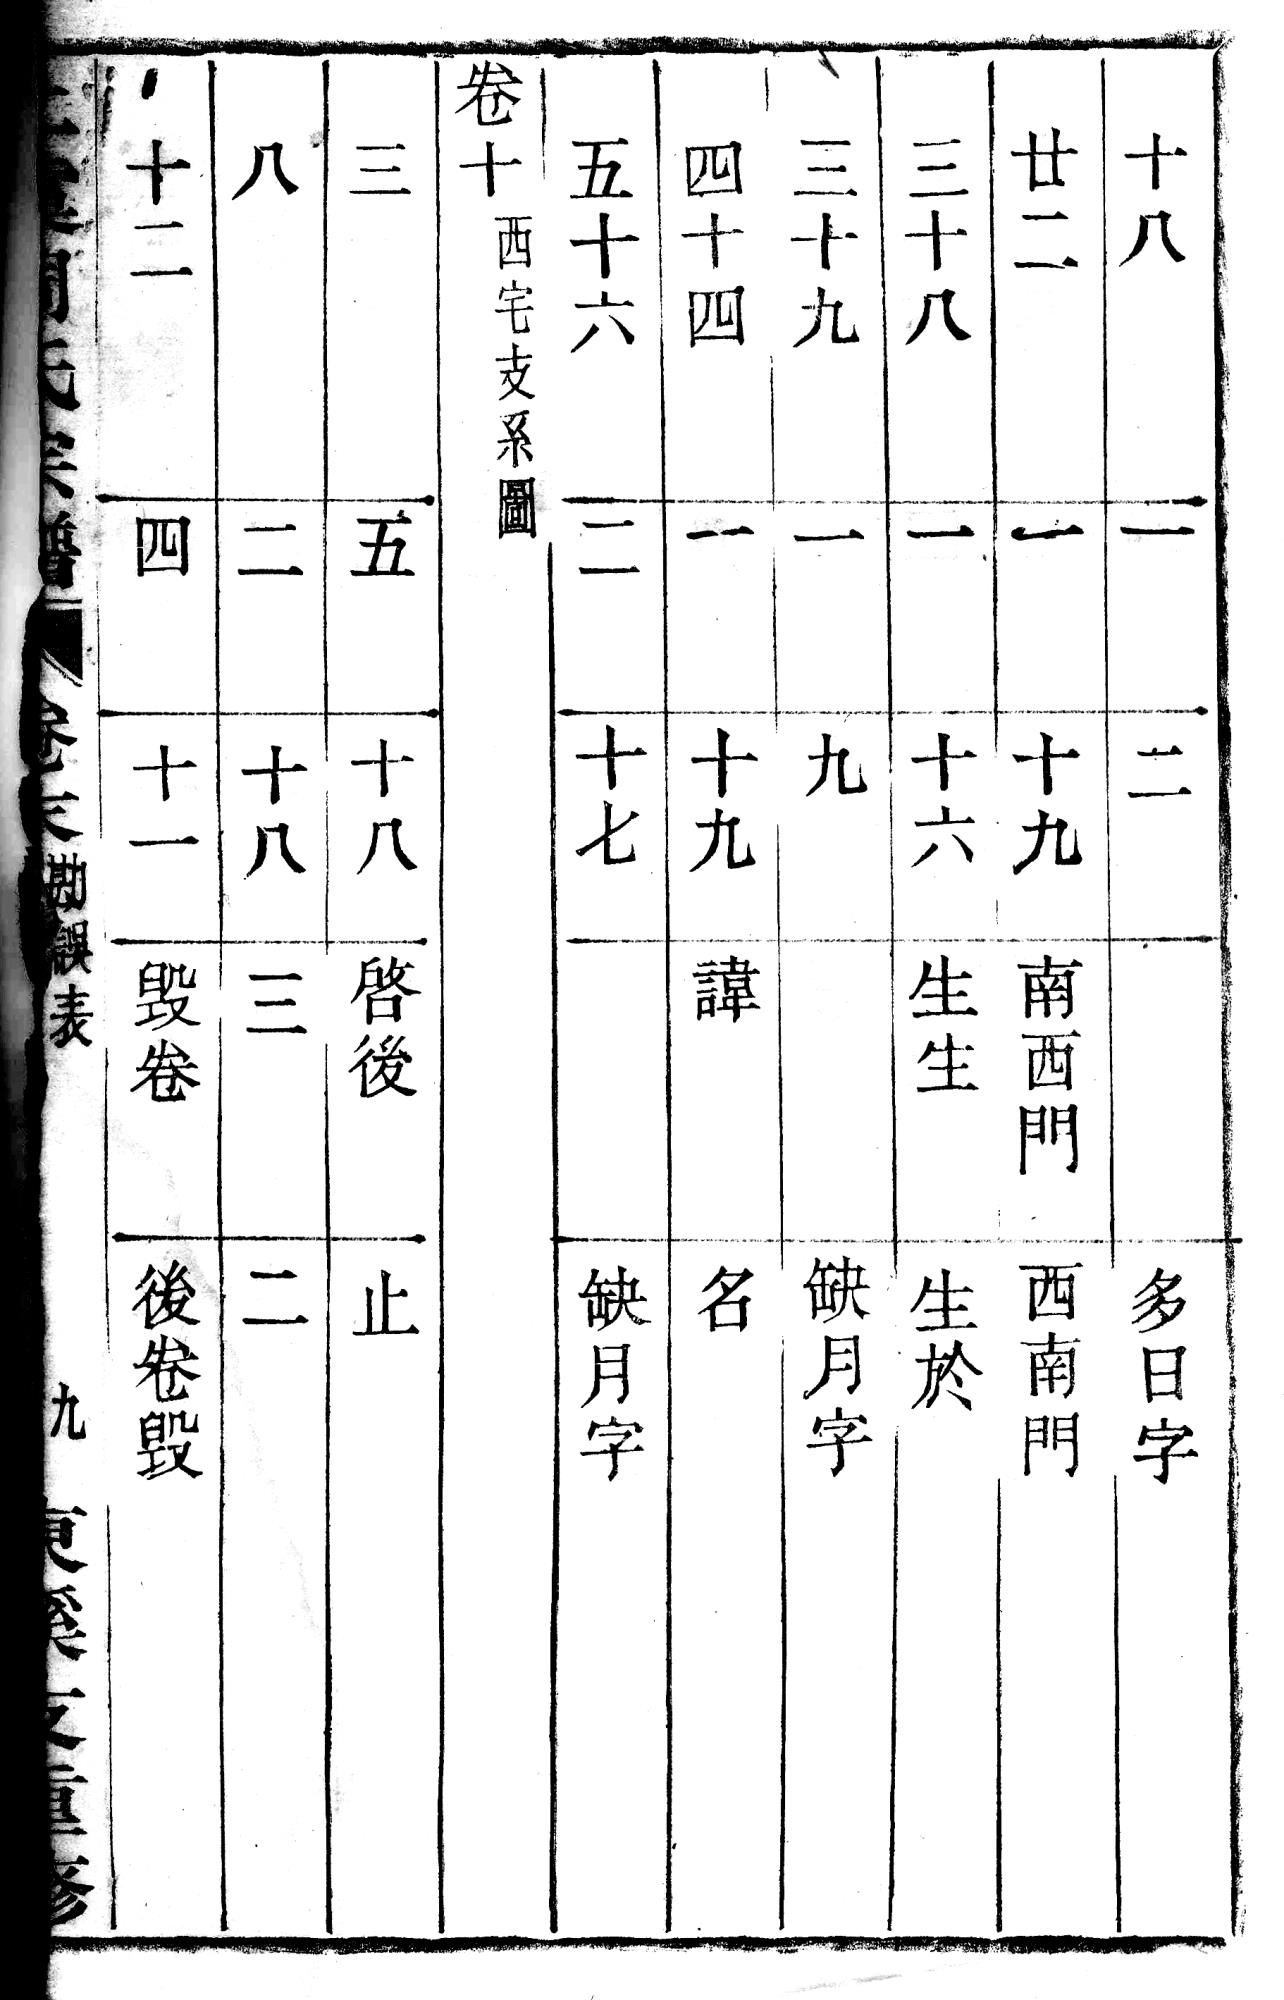 十八 一 二 多日字
廿二 一 十九 南西門 西南門
三十八 一 十六 生生 生於
三十九 一 九 缺月字
四十四 一 十九 諱 名
五十六 二 十七 缺月字
卷十 西宅支系圖
三 五 十八 啓後 止
八 二 十八 三 二
十二 四 十一 毀卷 後卷毀
氏宗譜 卷末 勘誤表 九 支重修